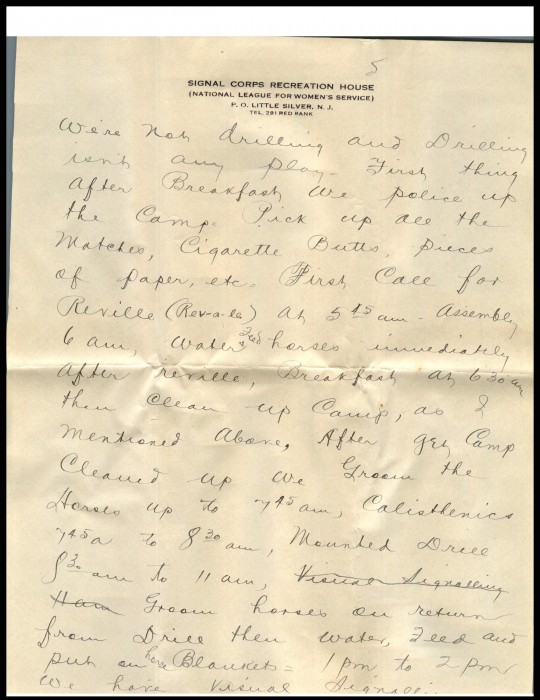 5
SIGNAL CORPS RECREATION HOUSE
(NATIONAL LEAGUE FOR WOMEN'S SERVICE)
P. O. LITTLE SILVER, N. J.
TEL. 291 RED BANK
We're not drilling and Drilling
isn't any play. First thing
After Breakfast we police up
the Camp. Pick up all the
Matches, Cigarette Butts, pieces
of paper, etc. First Call for
Reville (Rev-a-lee) at 5 45 am - Assembly
6 am, Water & Feed horses immediately
After reville, Breakfast at 6 30 am
then Clean up Camp, as I
Mentioned Above, After get Camp
Cleaned up we Groom the
Horses up to 7 45 am, Calisthenics
7 45 a to 8 30 am, Mounted Drill
8 30 am to 11 am, Visual Signalling
11 am Groom horses on return
from Drill then water, Feed and
put on horse Blankets = 1 pm to 2 pm
We have Visual Signalli